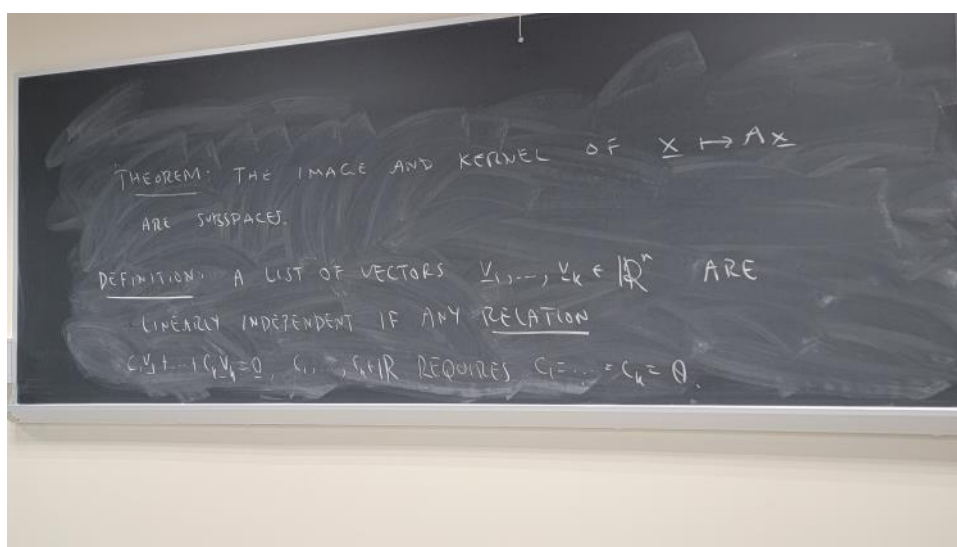 THEOREM: THE IMAGE AND KERNEL OF x ↦ Ax
ARE SUBSPACES.
DEFINITION: A LIST OF VECTORS v₁,..., vₖ ∈ ℝⁿ ARE
LINEARLY INDEPENDENT IF ANY RELATION
c₁v₁+...+cₖvₖ=0, c₁,...,cₖ∈ℝ REQUIRES c₁=...=cₖ=0.